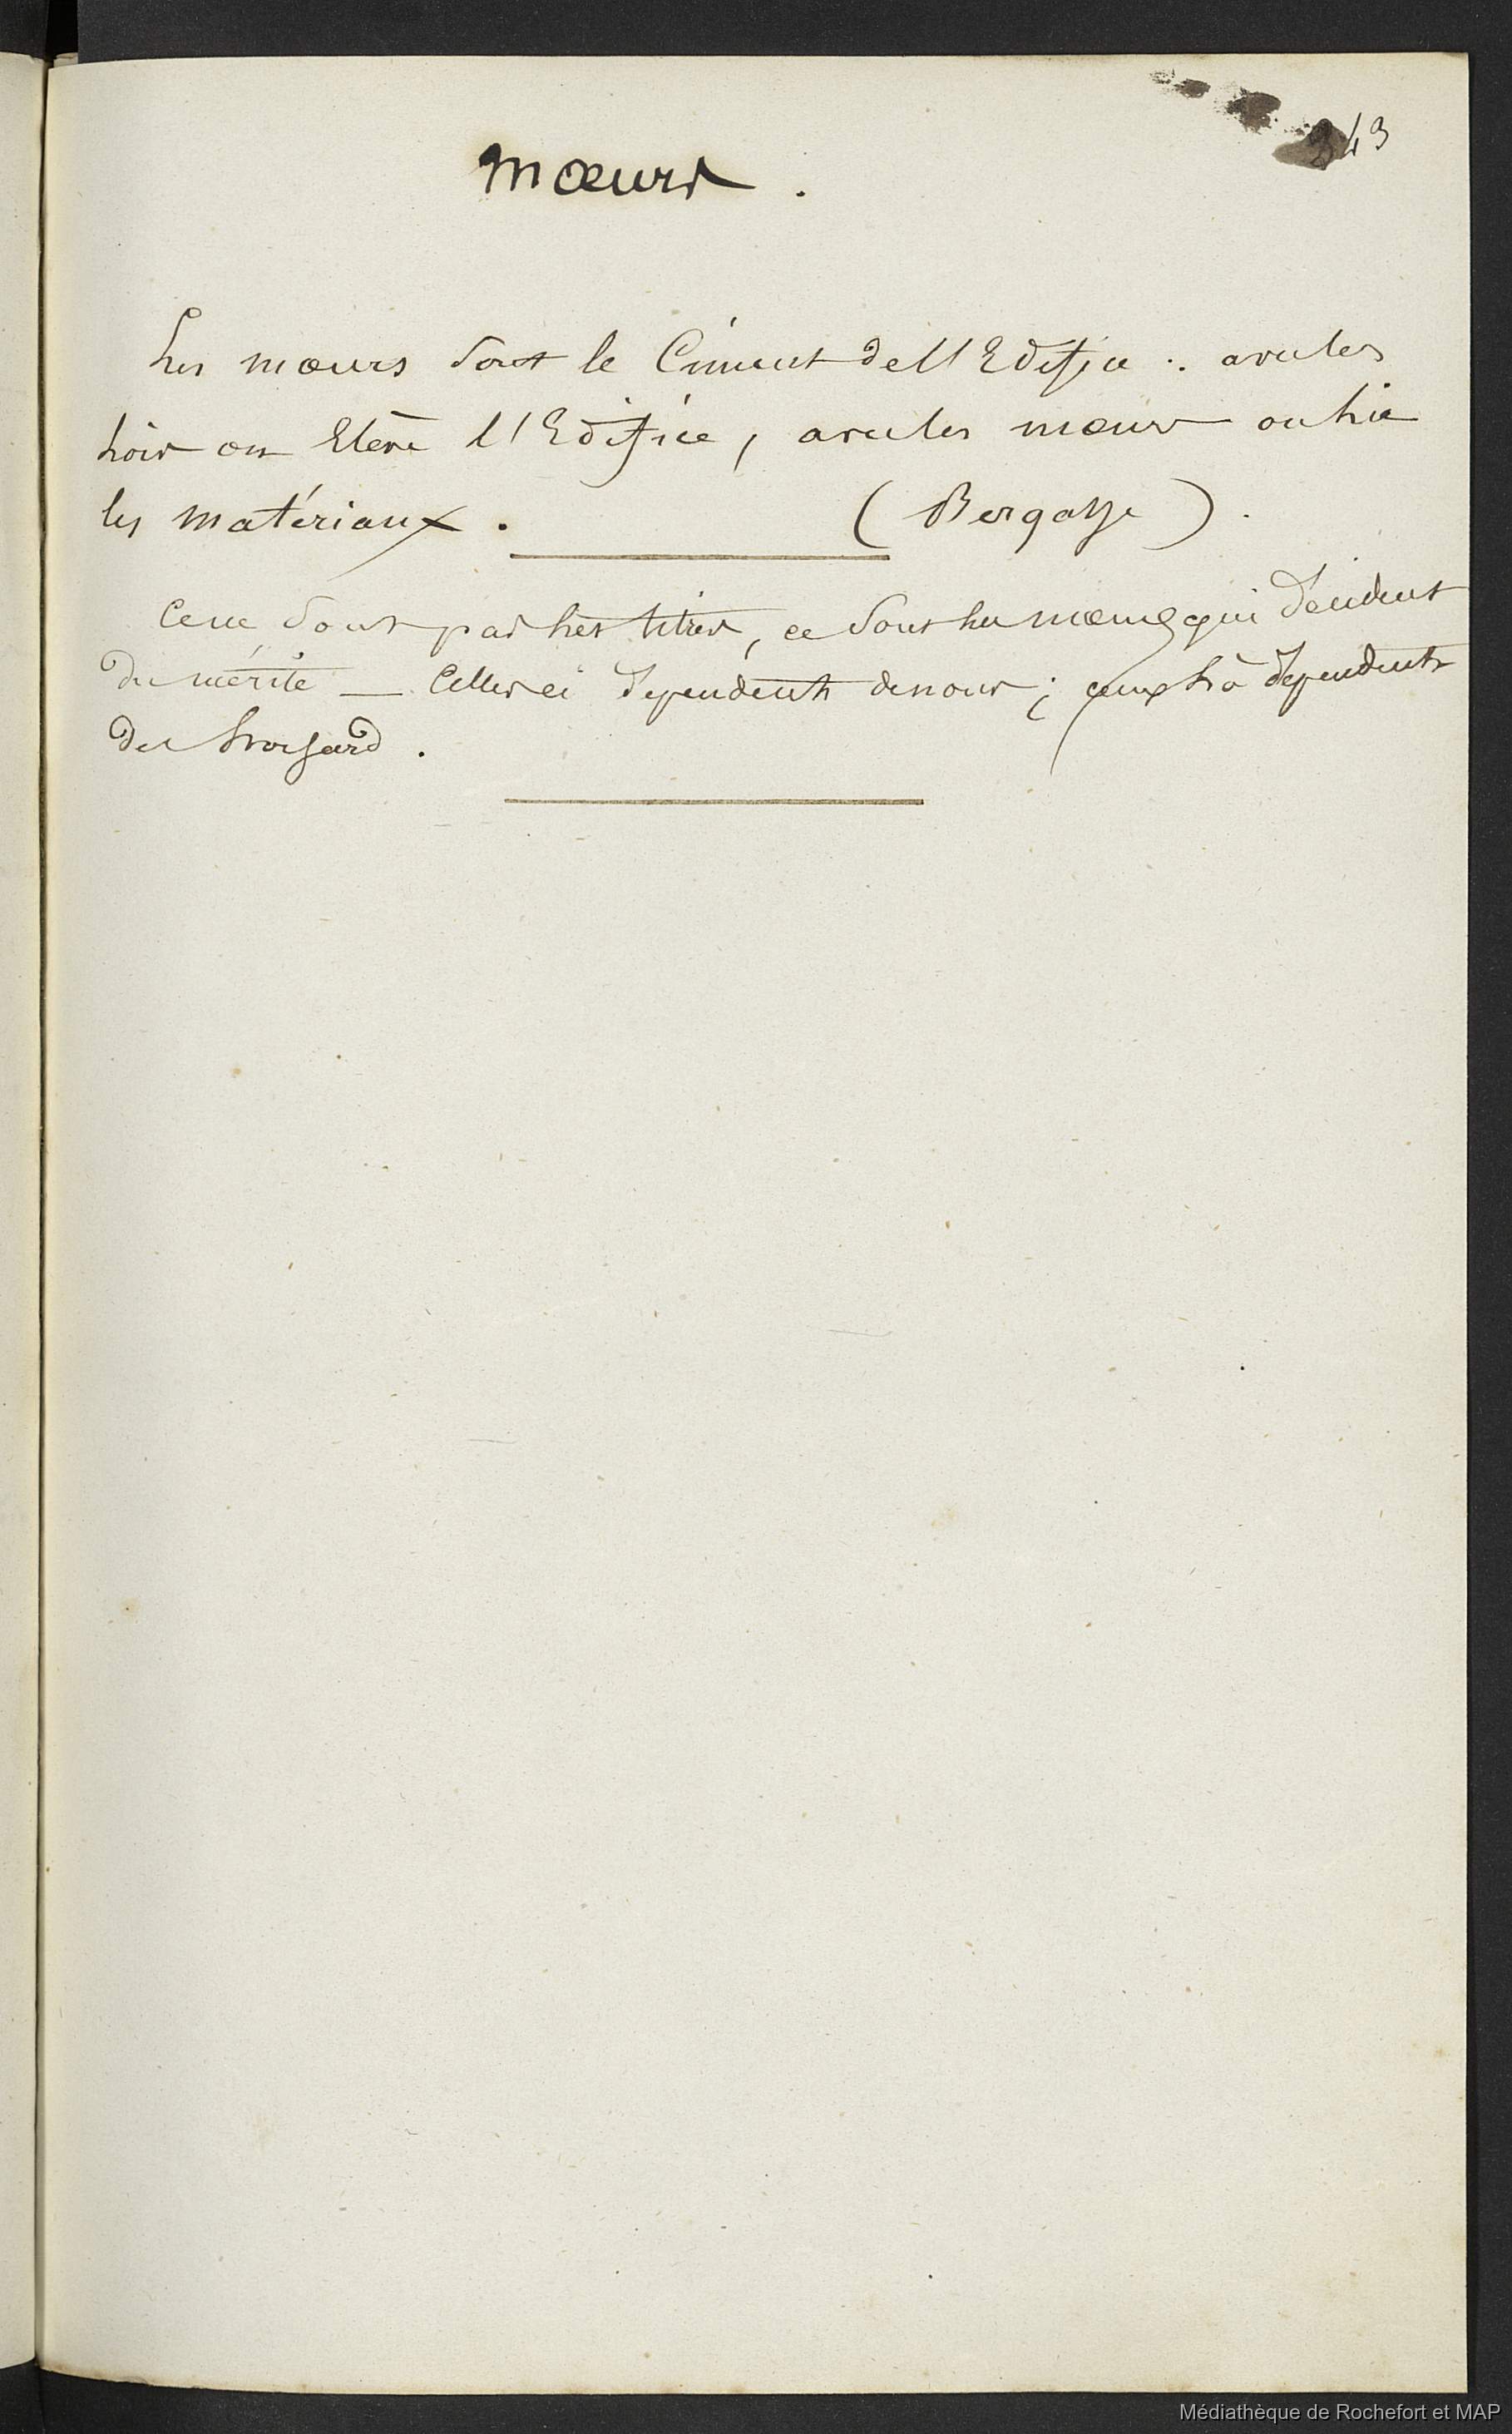 343
Mœurs .
Les mœurs sont le Ciment de l'Edifice : avec les
lois on Elève l'Edifice, avec les mœurs on lie
les matériaux . ( Bergasse ) .
Ce ne sont pas les titres, ce sont les mœurs qui décident
du mérite — Celles ci dépendent de nous ; ceux là dépendent
des hasard .
Médiathèque de Rochefort et MAP